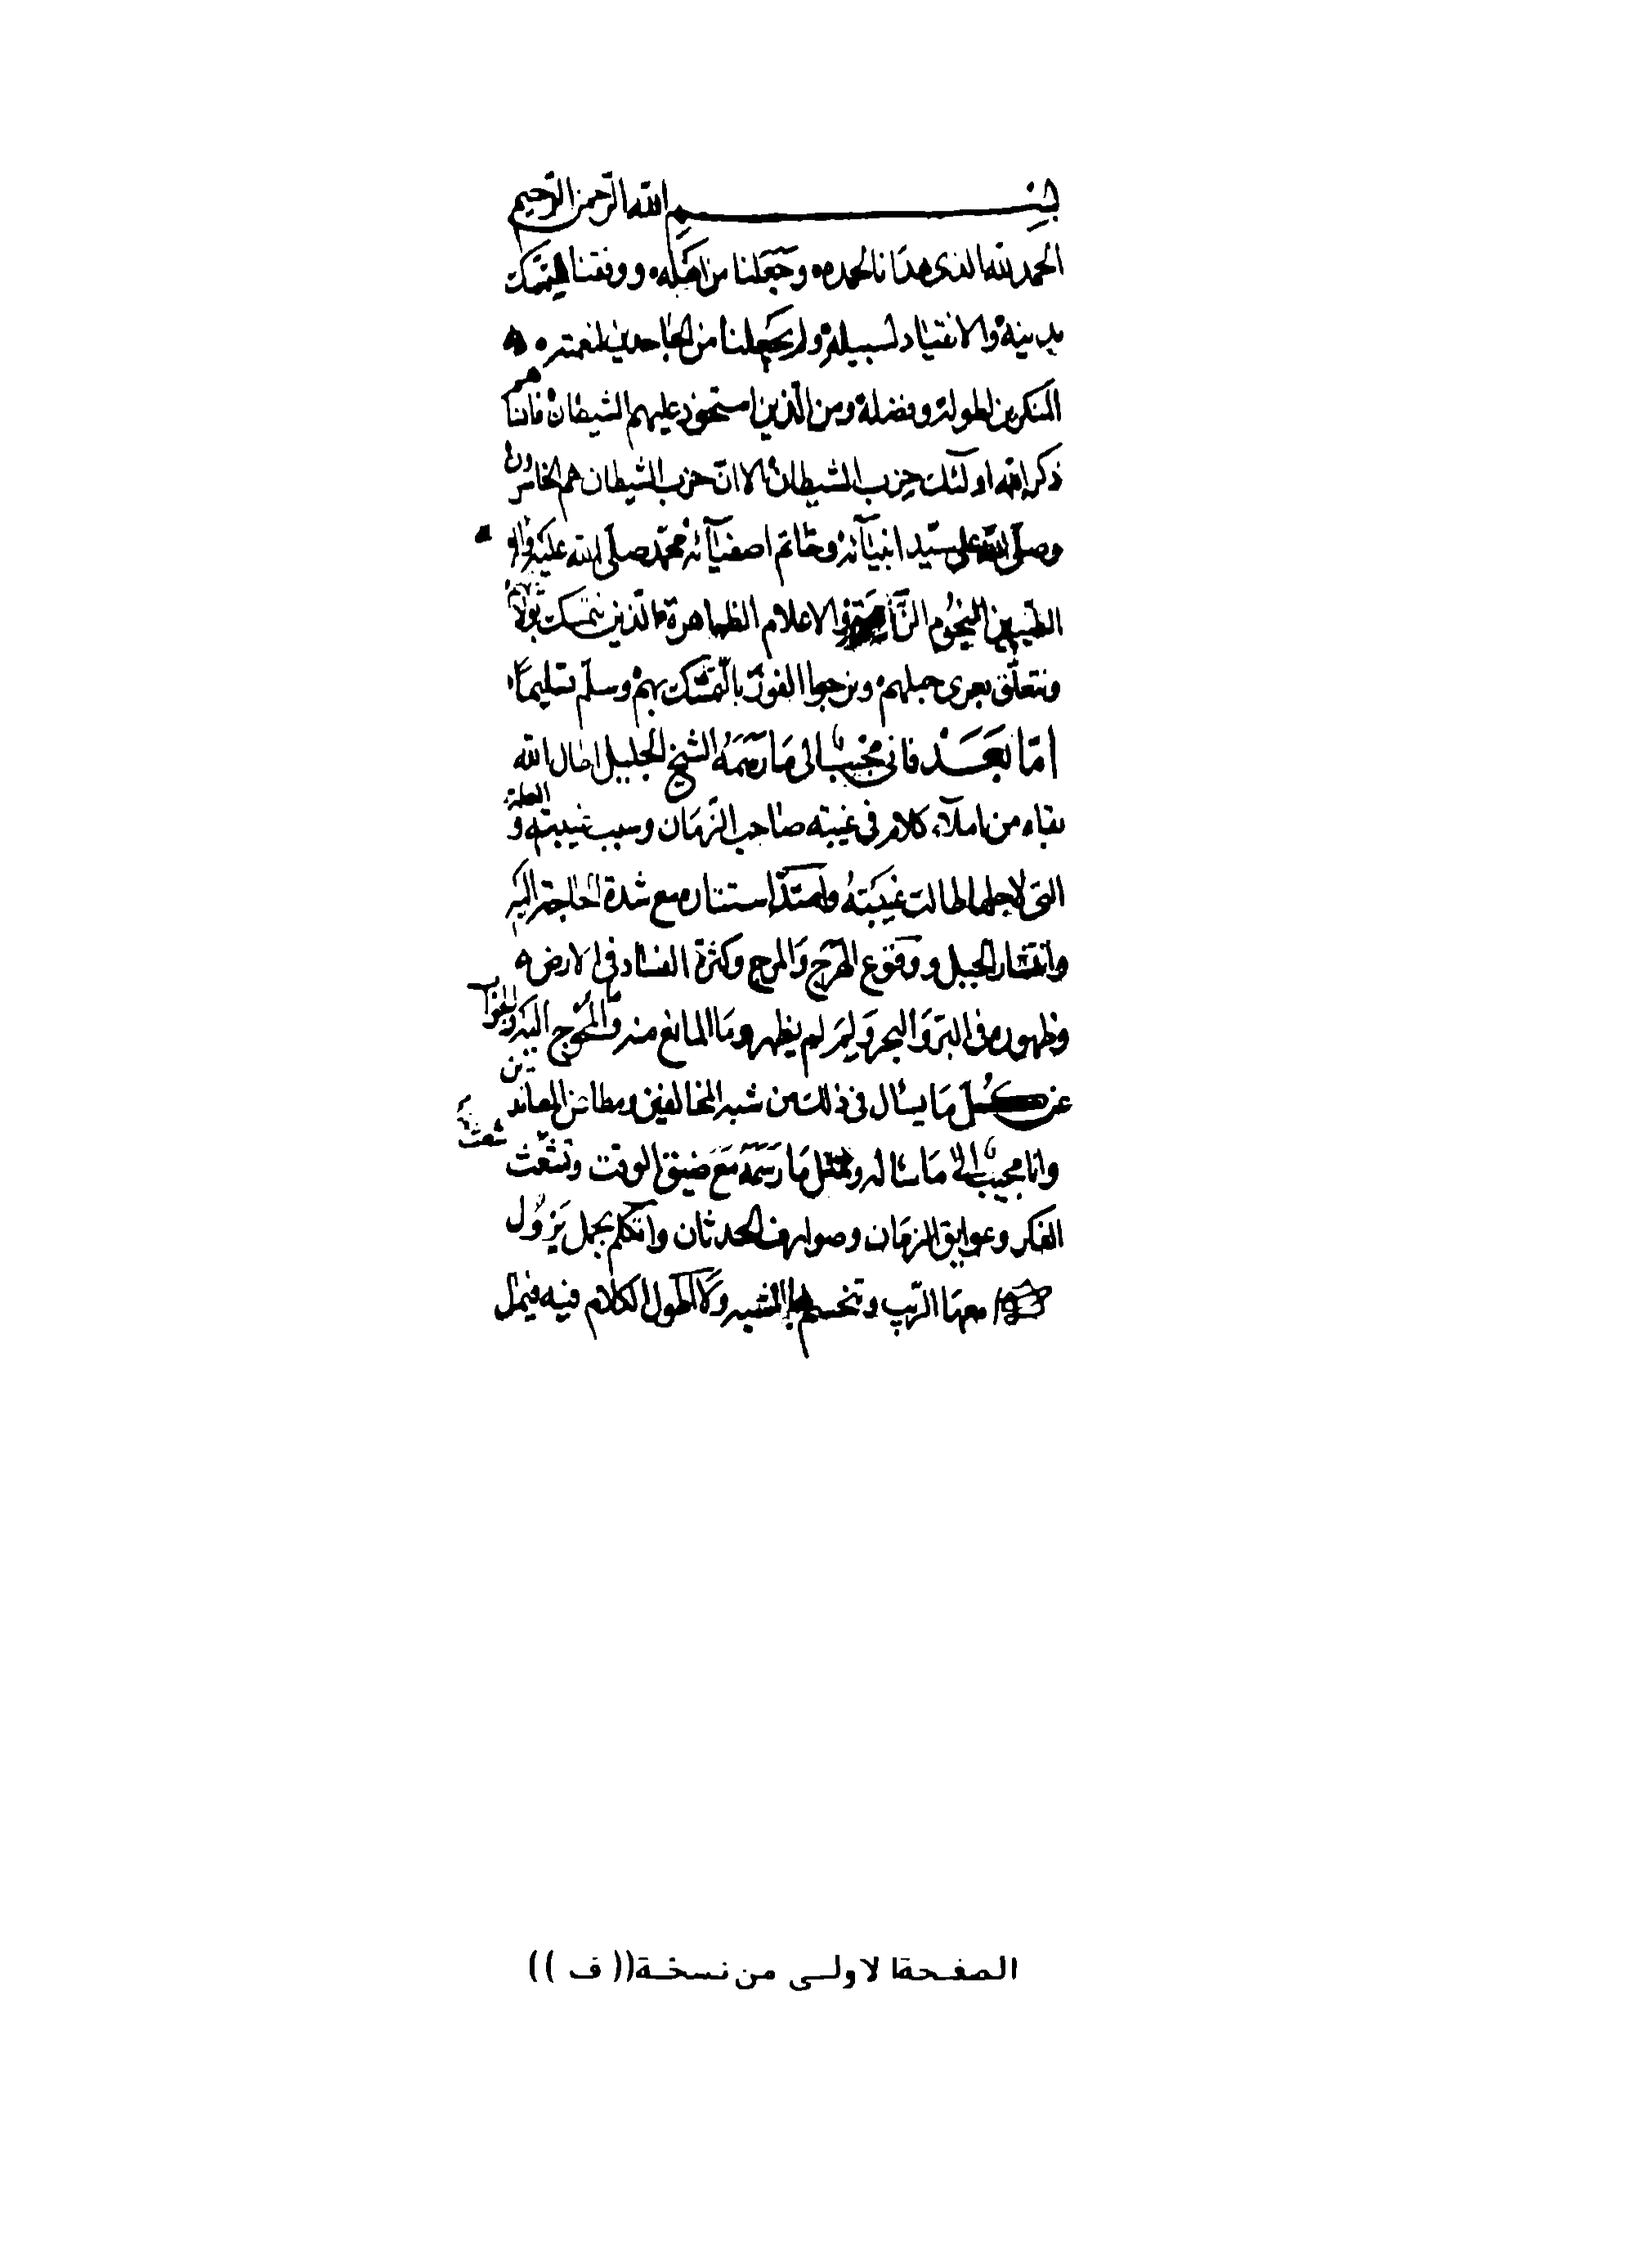 بسم الله الرحمن الرحيم
الحمد لله الذي هدانا لحمده وجعلنا من اهله ووفقنا للتمسك
بدينه والانقياد لسبيله ولم يجعلنا من الجاحدين لنعمته
المنكرين لطوله وفضله ومن الذين استحوذ عليهم الشيطان فانساهم
ذكر الله اولئك حزب الشيطان الا ان حزب الشيطان هم الخاسرون
وصلى الله على سيد انبيآئه وخاتم اصفيآئه محمد صلى الله عليه وآله
الطيبين النجوم الزاهرة والاعلام الظاهرة الذين نتمسك بولائهم
ونتعلق بعرى حبلهم ونرجوا الفوز بالتمسك بهم وسلم تسليما
اما بعد فاني مجيب الى ما رسمه الشيخ الجليل اطال الله
بقاه من املآء كلام في غيبة صاحب الزمان وسبب غيبته والعلة
التي لاجلها طالت غيبته وامتد استتاره مع شدة الحاجة اليه
وانتشار الحيل ووقوع الهرج والمرج وكثرة الفساد في الارض
وظهوره في البر والبحر ولم لم يظهر وما المانع منه وما المحوج اليه والجواب
عن كل ما يسال في ذلك من شبه المخالفين ومطاعن المعاندين
وانا مجيب الى ما ساله وممتثل ما رسمه مع ضيق الوقت وتشعث
الفكر وعوايق الزمان وصوارف الحدثان واتكلم بجمل يزول
معها الريب وتنحسم به الشبه ولا اطول الكلام فيه فيمل
الصفحة الاولى من نسخة (( ف ))